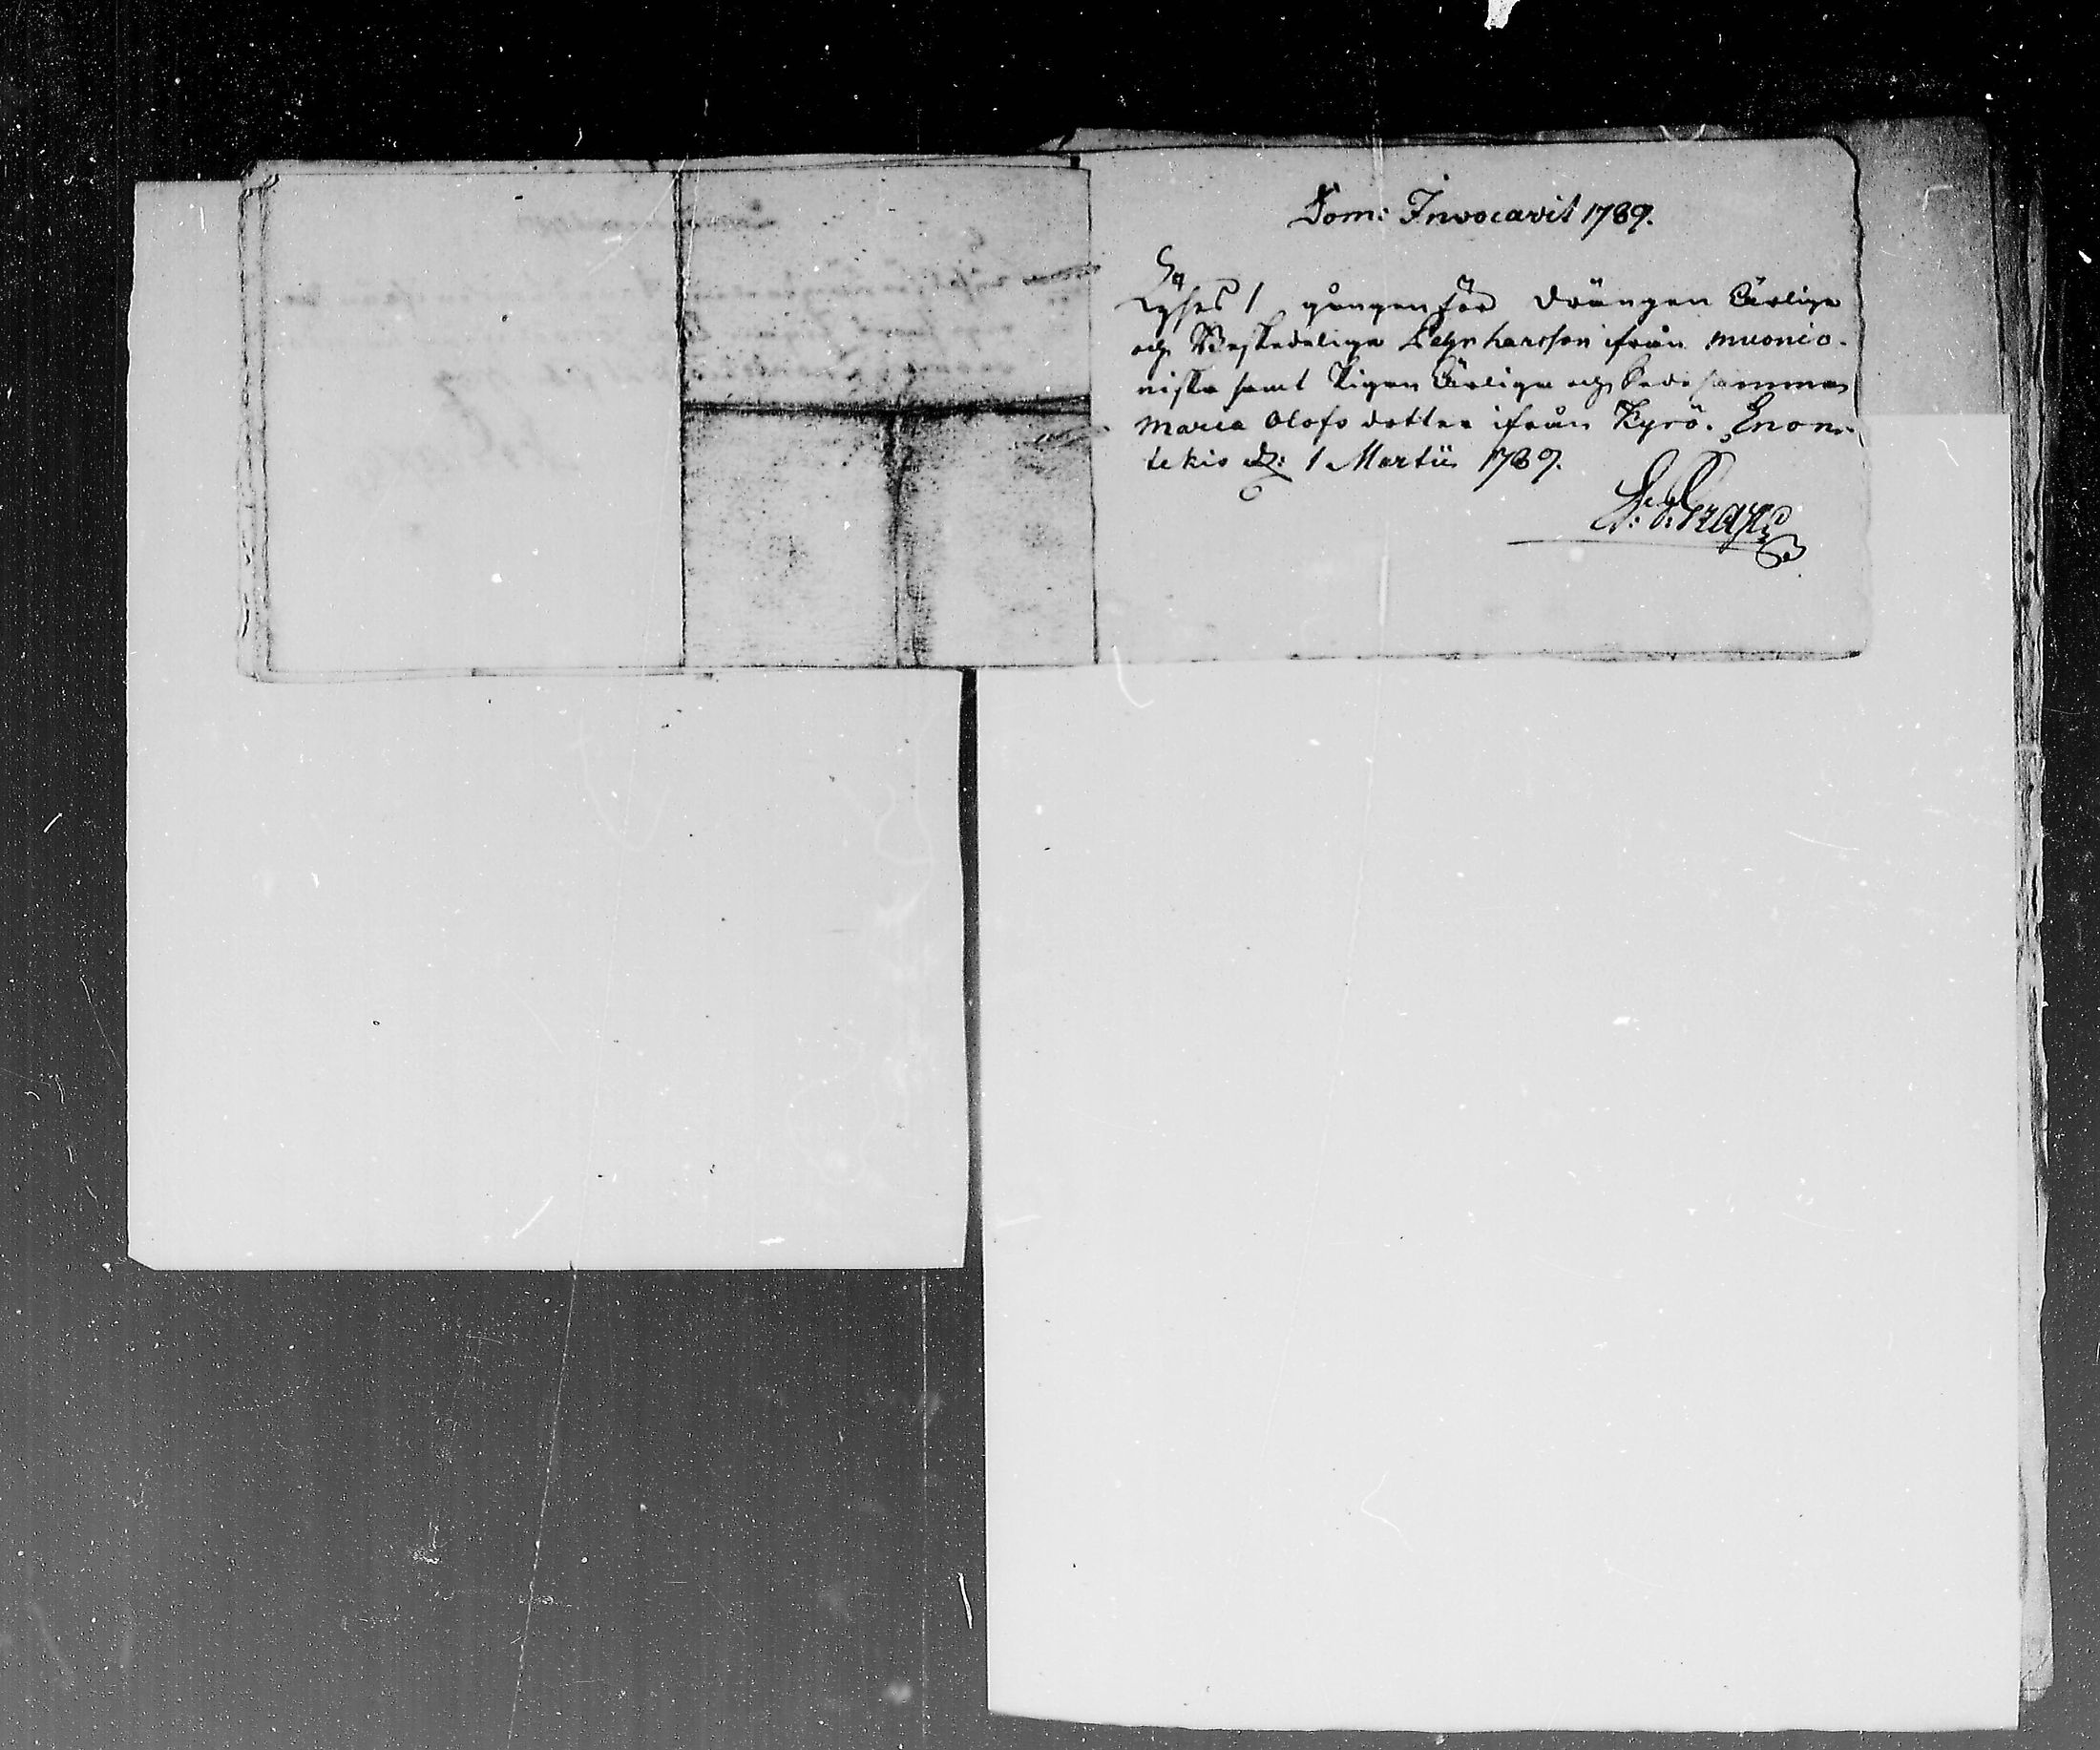 Dom: Invocavit 1789.
Lyses 1 gången för Drängen Ärlige
och Beskedelige Pehr harsson ifrån muonio-
niska samt Pigan Ärlige och Sedesamma
Maria Olofs dotter ifrån Kyrö. Enon-
tekis d: 1 Martii 1789.